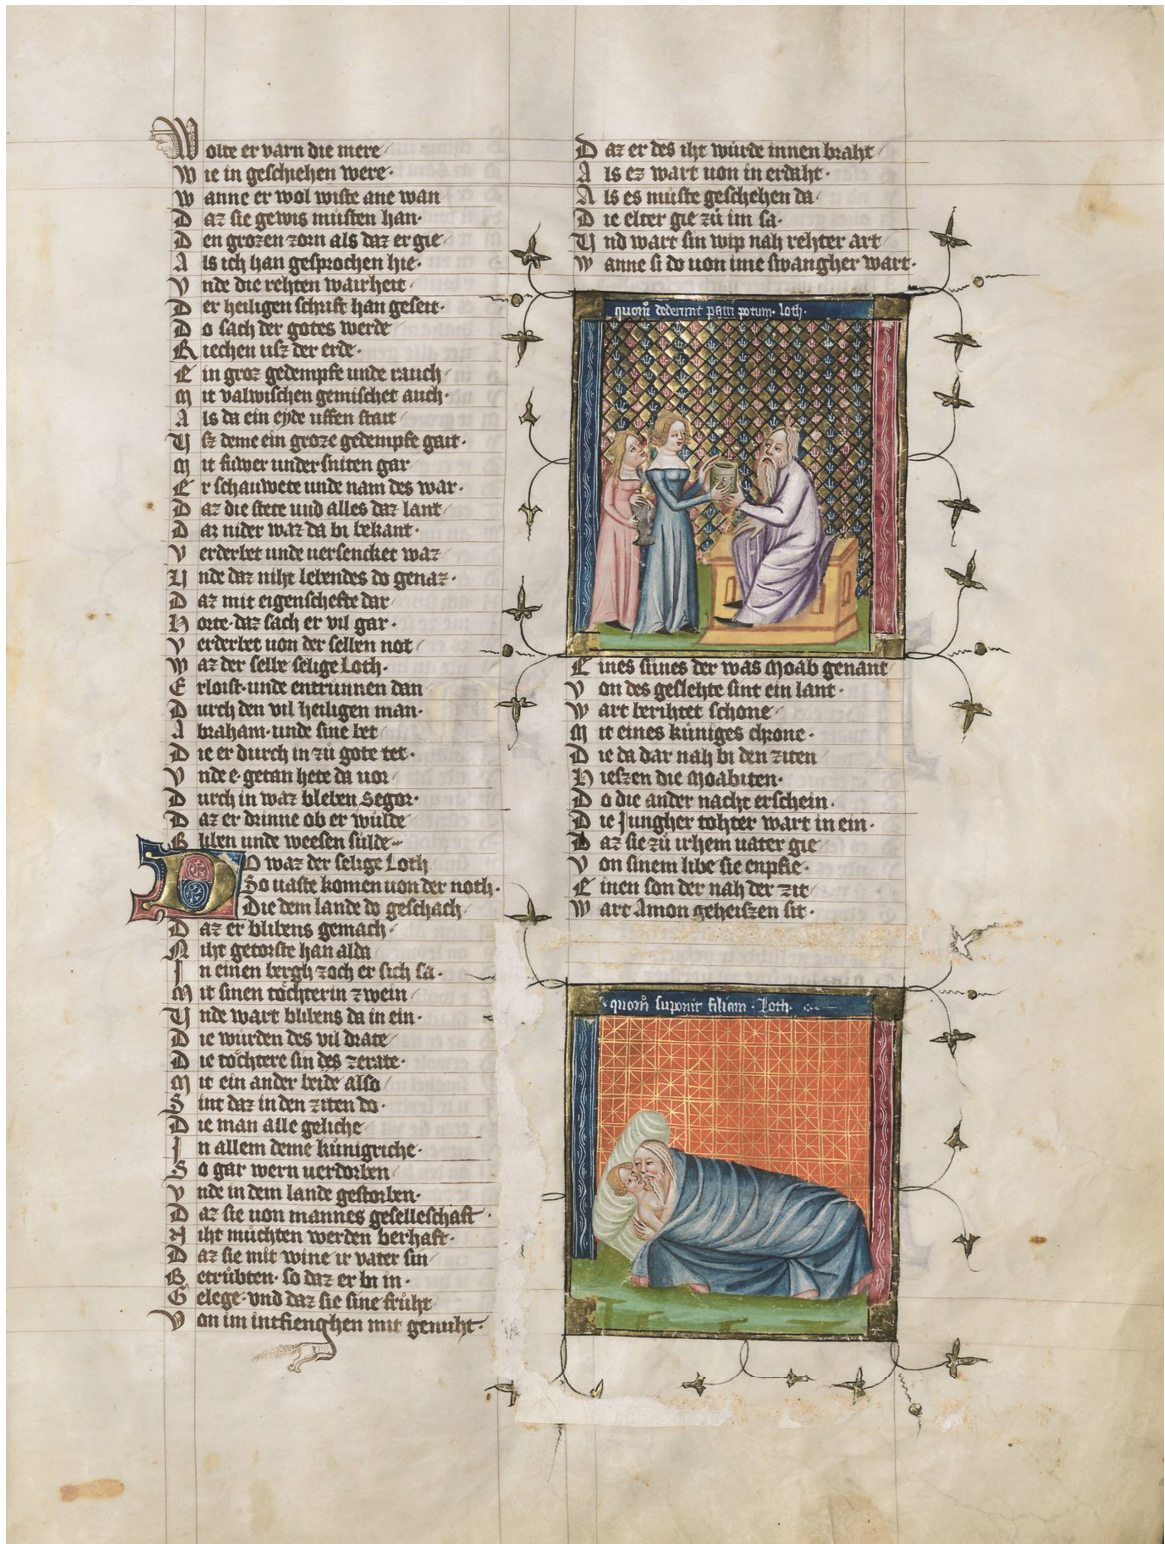 Wolte er varn die mere
Wie in geschiehen were·
Wanne er wol wiste ane wan
Daz sie gewis müsten han·
Den grozen zorn als daz er gie
Als ich han gesprochen hie·
Vnde die rehten wairheit
Der heiligen schrift han geseit·
Do sach der gotes werde
Riechen usz der erde·
Ein groz gedempfe unde rauch
Mit valwischen gemischet auch·
Als da ein eyde uffen stait
Vsz deme ein groze gedempfe gait·
Mit fuwer undersniten gar
Er schauwete unde nam des war·
Daz die stete und alles daz lant
Daz nider waz da bi bekant·
Verderbet unde uersencket waz
Vnde daz niht lebendes do genaz·
Daz mit eigenschefte dar
Horte· daz sach er vil gar·
Verderbet uon der selben not
Waz der selbe selige Loth·
Erloist· unde entrunnen dan
Durch den vil heiligen man·
Abraham· unde sine bet
Die er durch in zů gote tet·
Vnde e· getan hete da uor
Durch in waz bleben Segor·
Daz er drinne ob er wůlde
Bliben unde weesen sůlde
DO waz der selige Loth
So uaste komen uon der noth·
Die dem lande do geschach
Daz er blibens gemach
Niht getorste han alda
In einen bergh zoch er sich sa·
Mit sinen tochterin zwein
Vnde wart blibens da in ein·
Die wurden des vil drate
Die tochtere sin des zerate·
Mit ein ander beide also
Sint daz in den ziten do·
Die man alle geliche
In allem deme kůnigriche·
So gar wern uerdorben
Vnde in dem lande gestorben·
Daz sie uon mannes geselleschaft·
Niht můchten werden berhaft·
Daz sie mit wine ir vater sin
Betrůbten· so daz er bi in·
Gelege· vnd daz sie sine frůht
Von im intfienghen mit genuht·
Daz er des iht wůrde innen braht
Als ez wart uon in erdaht·
Als es můste geschehen da
Die elter gie zů im sa·
Vnd wart sin wip nah rehter art
Wanne si do uon ime swangher wart·
quomodo dederunt patri potum· loth·
Eines sůnes der was Moab genant
Von des geslehte sint ein lant·
Wart berihtet schone
Mit eines kůniges chrone·
Die da dar nah bi den ziten
Hieszen die Moabiten·
Do die ander nacht erschein·
Die Jungher tohter wart in ein·
Daz sie zů irhem uater gie
Von sinem libe sie enpfie·
Einen son der nah der zit
Wart Amon geheiszen sit·
quomodo suponit filiam· Loth·